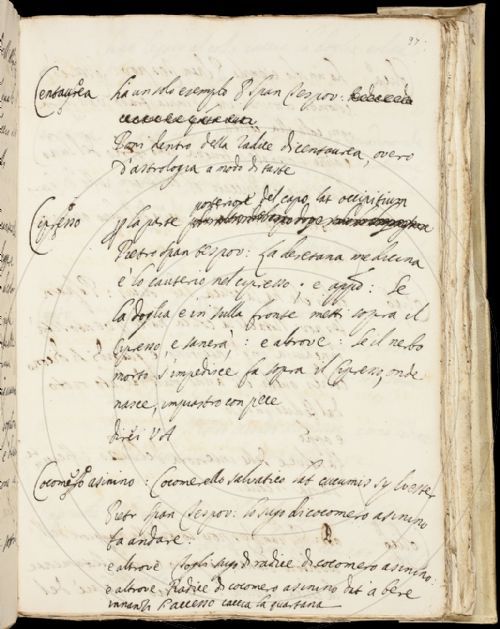 97.
Centaurea ha un solo esempio P. Span Tes pov:
Poni dentro della radice di centaurea, overo
d'astrologia a modo di taste
Cipresso p la parte posteriore del capo, lat. occipitium
Pietro Span tes pov: La deretana medicina
è lo cauterio nel cipresso; e app.o: Se
la doglia è in sulla fronte metti sopra il
Cipresso, e sanerà: e altrove: Se il nerbo
morto s'impedisce fa sopra il Cipresso, onde
nasce, impiastro con pece
direi VA
Cocomero asinino: Cocomerello salvatico lat cucumis sylvester
Pietr Span Tes pov: lo sugo di cocomero asinino
fa andare.
e altrove togli sugo di radice di cocomero asinino:
e altrove. Radice di cocomero asinino dit' a bere
innanzi l'accesso caccia la quartana